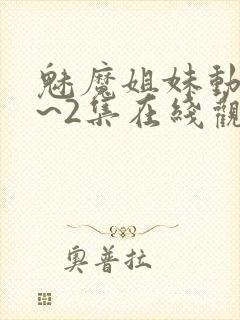 魅魔姐妹動
~2集在綫觀
奧普拉